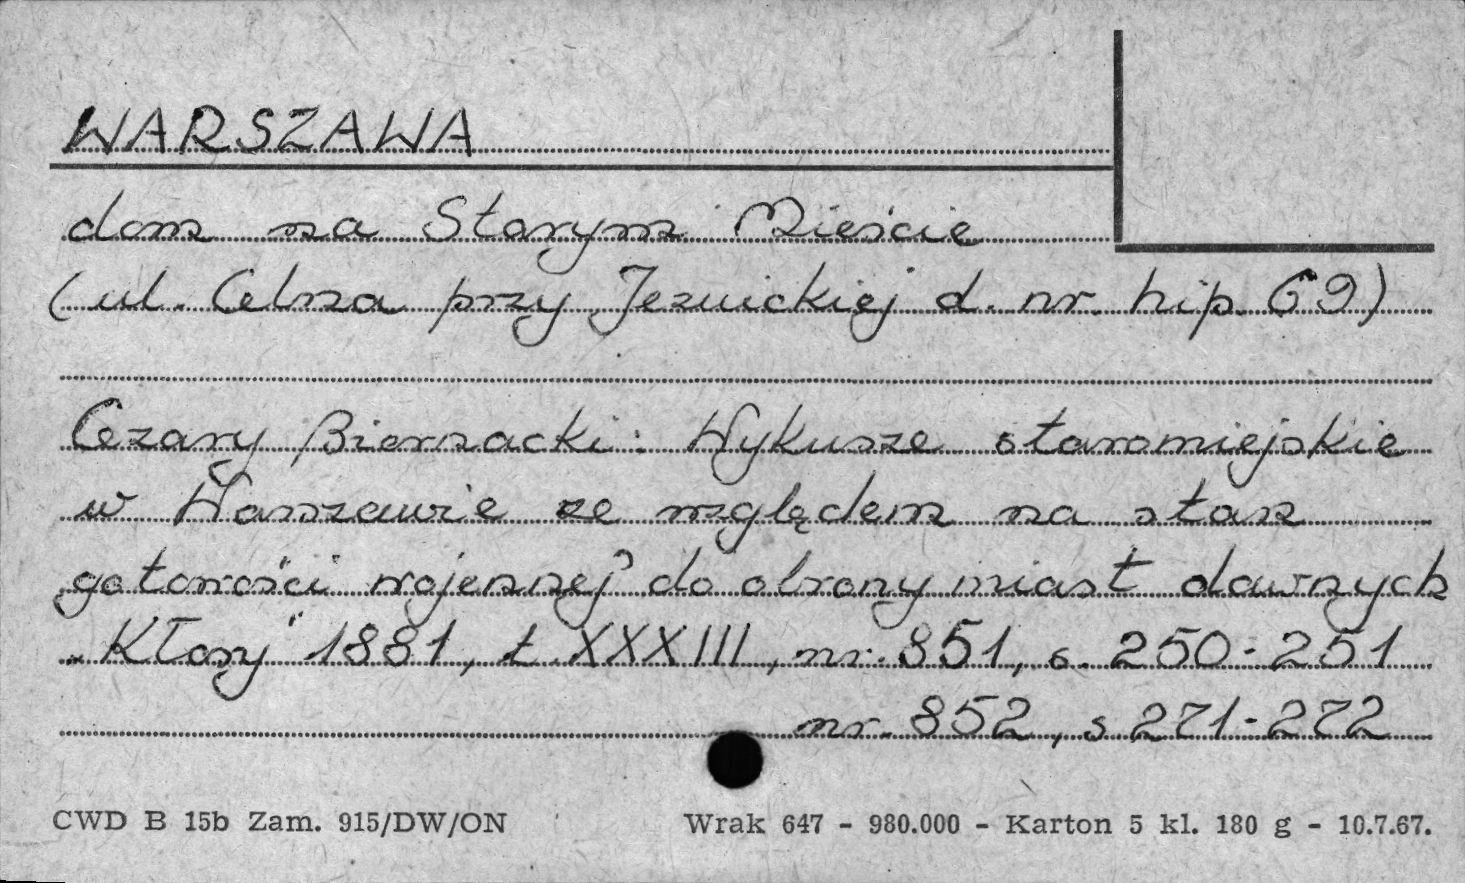 WARSZAWA
dom na Starym Mieście
(ul. Celna przy Jezuickiej d. nr. hip. 69)
Cezary Biernacki: Wykusze staromiejskie
w Warszawie ze względem na stan
gotowości wojennej do obrony miast dawnych
„Kłosy" 1881, t. XXXIII, nr. 851, s. 250-251
nr. 852, s 271-272
CWD B 15b Zam. 915/DW/ON Wrak 647 - 980.000 - Karton 5 kl. 180 g - 10.7.67.